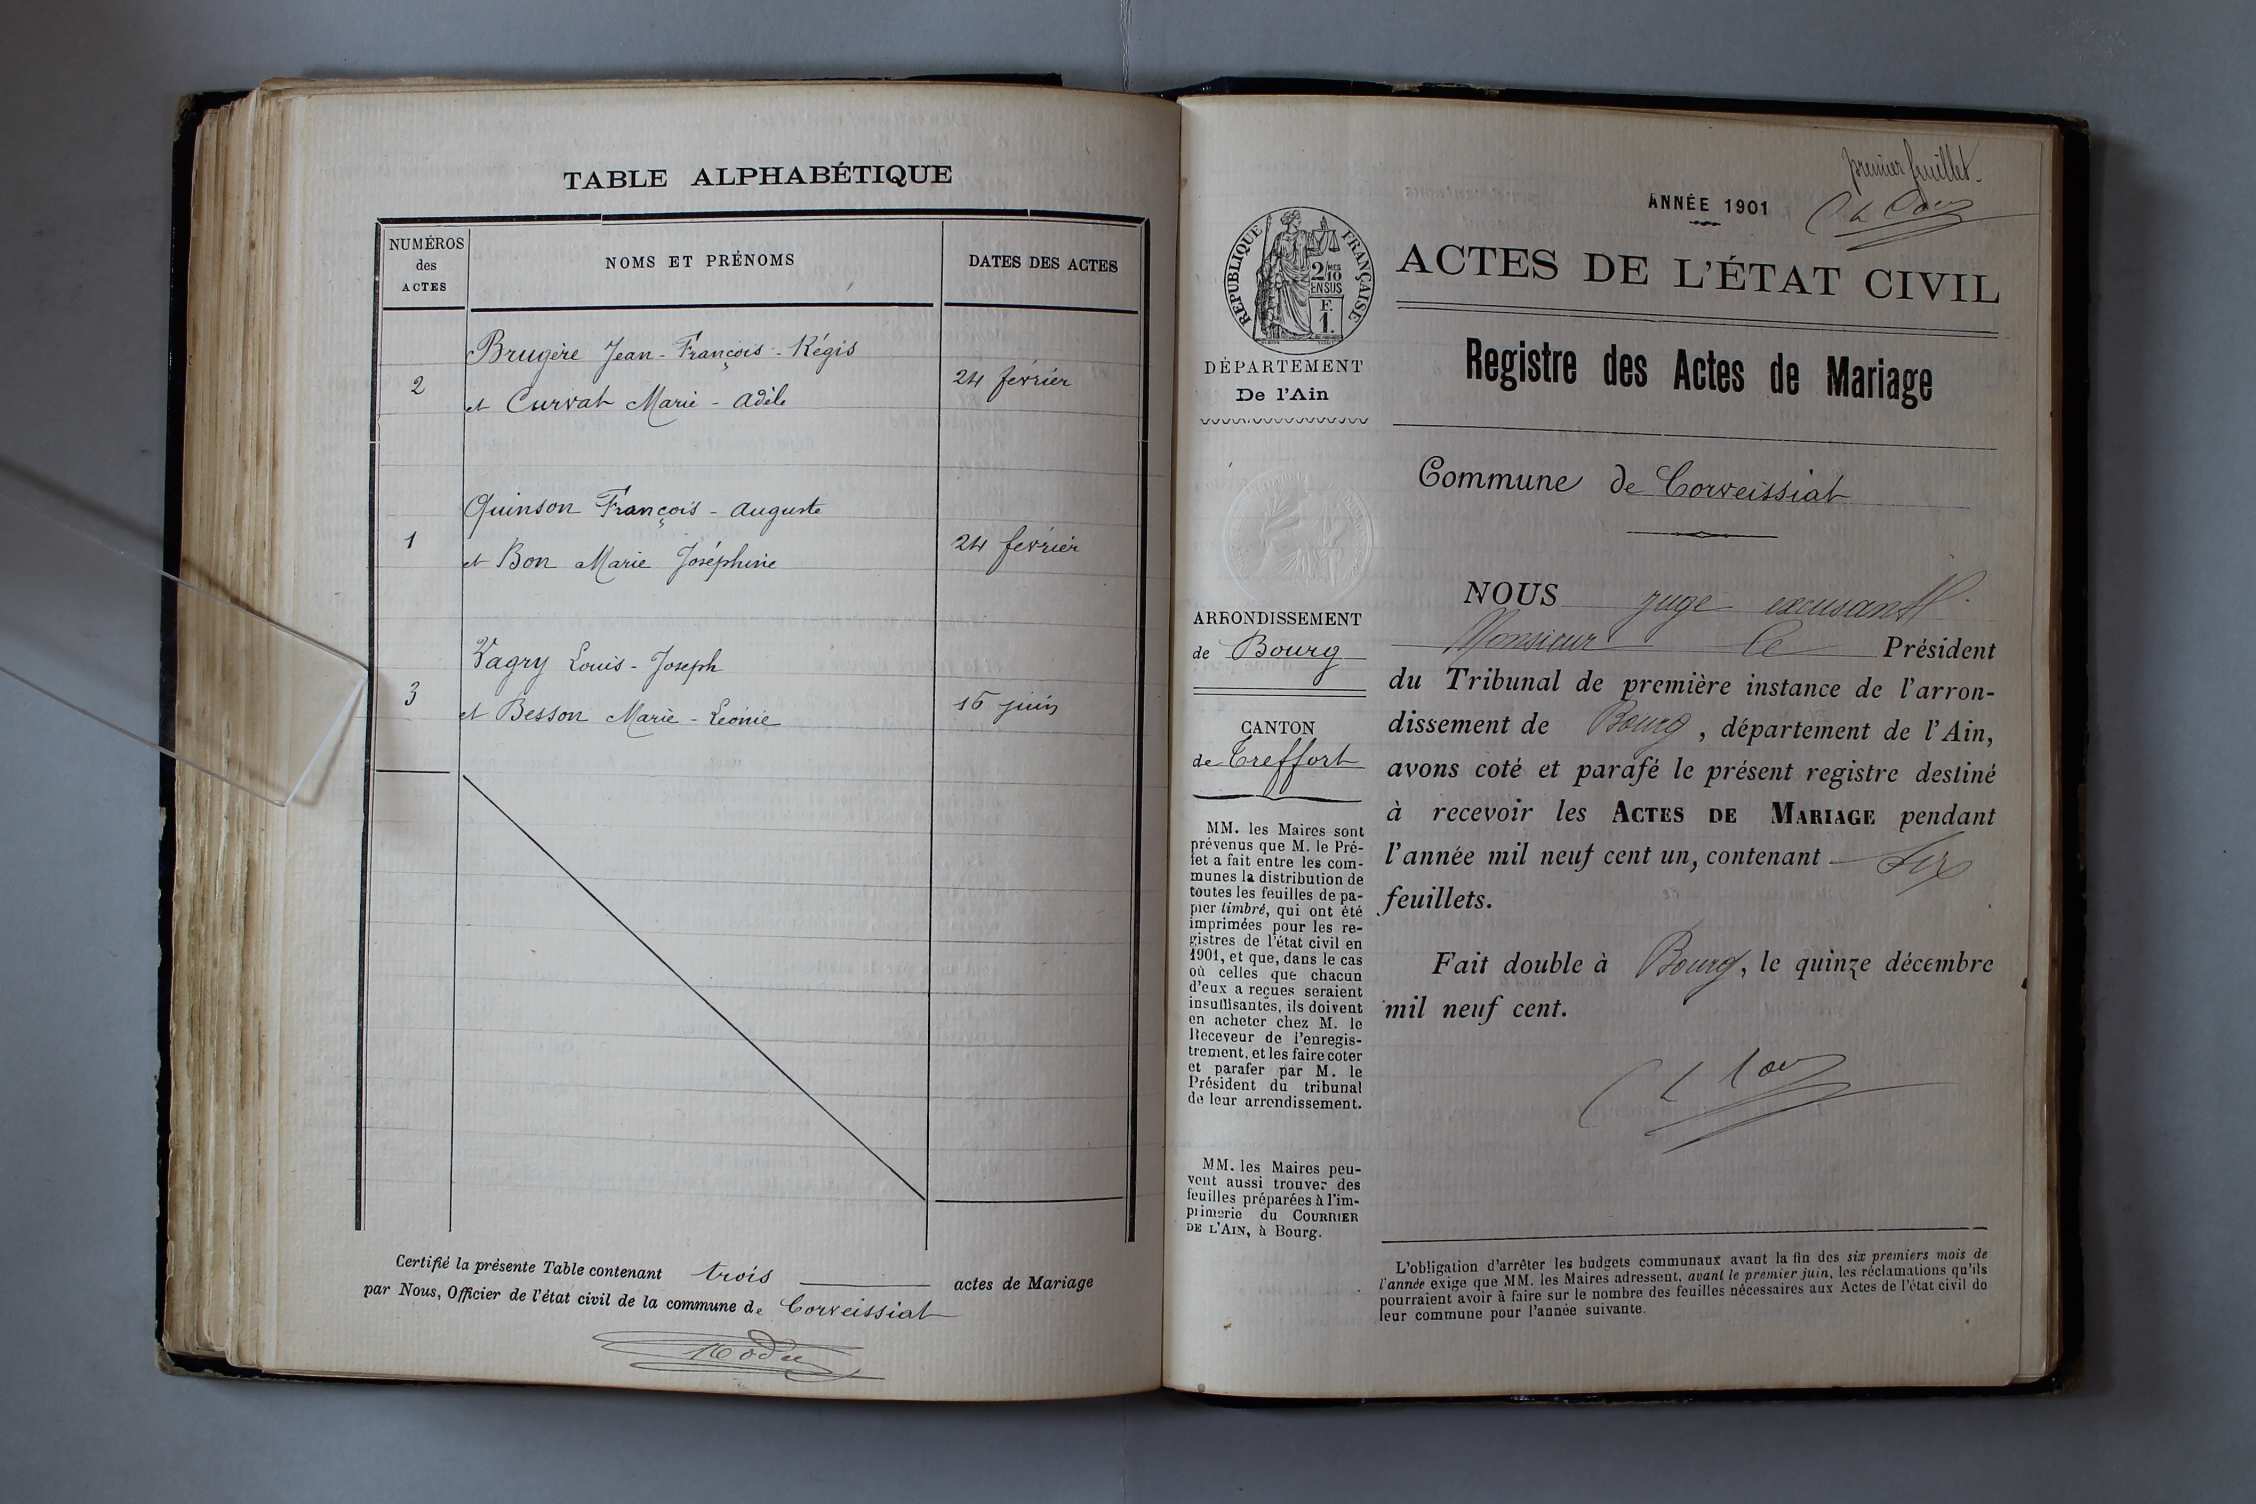 TABLE ALPHABÉTIQUE
NUMÉROS
des
ACTES
NOMS ET PRÉNOMS
DATES DES ACTES
Brugère Jean-François-Régis
2
24 février
et Curvat Marie-Adèle
Quinson François-Auguste
1
24 février
et Bon Marie Joséphine
Vagry Louis-Joseph
3
15 juin
et Besson Marie-Léonie
Certifié la présente Table contenant trois actes de Mariage
par Nous, Officier de l'état civil de la commune de Corveissiat
premier feuillet
ANNÉE 1901
ACTES DE L'ÉTAT CIVIL
RÉPUBLIQUE FRANÇAISE
2/10
EN SUS
F.
1.
DÉPARTEMENT
De l'Ain
Registre des Actes de Mariage
Commune de Corveissiat
ARRONDISSEMENT
de Bourg
CANTON
de Treffort
MM. les Maires sont
prévenus que M. le Pré-
fet a fait entre les com-
munes la distribution de
toutes les feuilles de pa-
pier timbré, qui ont été
imprimées pour les re-
gistres de l'état civil en
1901, et que, dans le cas
où celles que chacun
d'eux a reçues seraient
insuffisantes, ils doivent
en acheter chez M. le
Receveur de l'enregis-
trement, et les faire coter
et parafer par M. le
Président du tribunal
de leur arrondissement.
MM. les Maires peu-
vent aussi trouver des
feuilles préparées à l'im-
primerie du COURRIER
DE L'AIN, à Bourg.
NOUS juge excusant
Monsieur le Président
du Tribunal de première instance de l'arron-
dissement de Bourg, département de l'Ain,
avons coté et parafé le présent registre destiné
à recevoir les ACTES DE MARIAGE pendant
l'année mil neuf cent un, contenant six
feuillets.
Fait double à Bourg, le quinze décembre
mil neuf cent.
L'obligation d'arrêter les budgets communaux avant la fin des six premiers mois de
l'année exige que MM. les Maires adressent, avant le premier juin, les réclamations qu'ils
pourraient avoir à faire sur le nombre des feuilles nécessaires aux Actes de l'état civil de
leur commune pour l'année suivante.